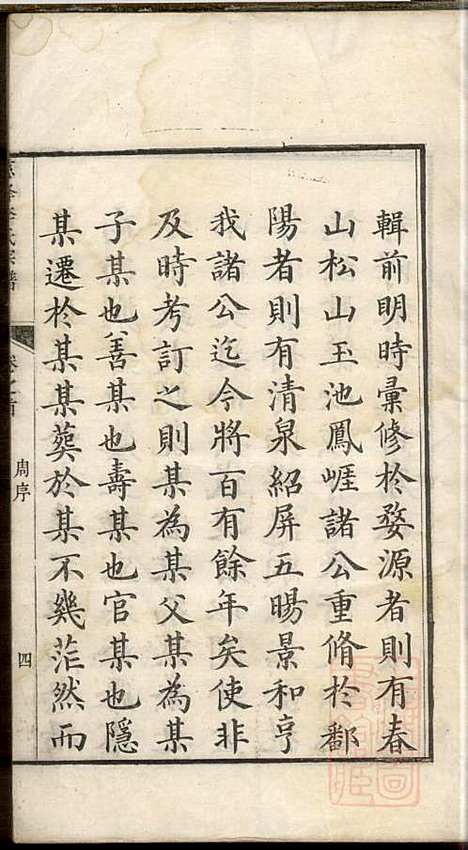 輯前明時彙修於婺源者則有春
山松山玉池鳳崕諸公重脩於鄱
陽者則有清泉紹屏五暘景和亨
我諸公迄今將百有餘年矣使非
及時考訂之則某為某父某為某
子某也善某也壽某也官某也隱
某遷於某某葬於某不幾茫然而
氏宗譜
周序
四